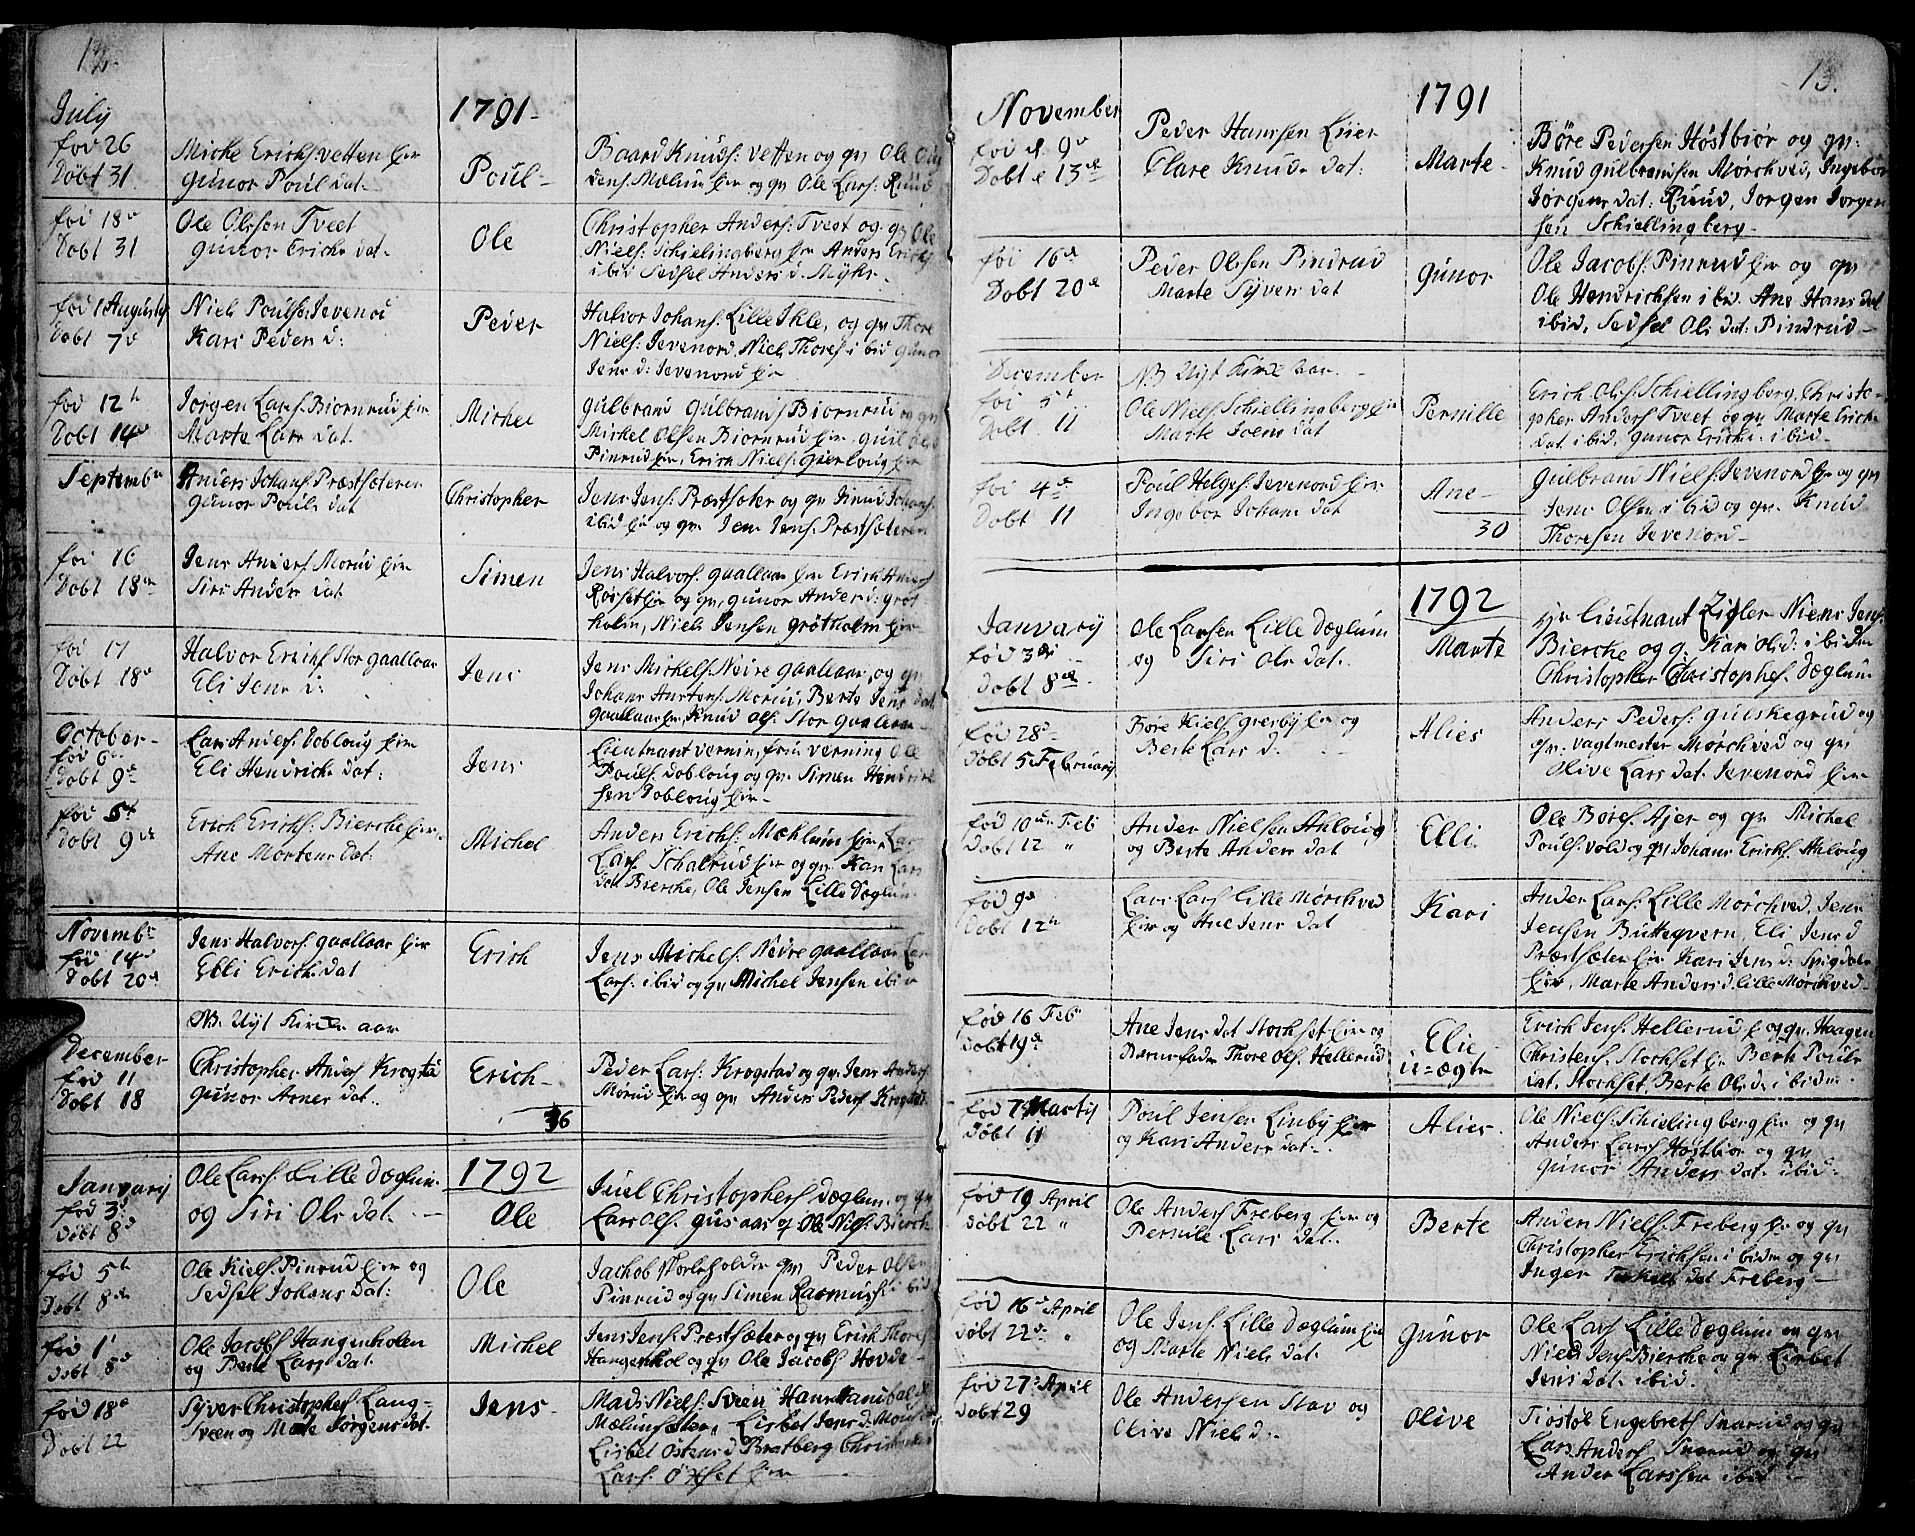 12.
1791-
July
fød 26
Døbt 31
Miche Erichs: vetten
gunor Poul dat.
Poul-
Baard Knuds: vetten og gs Ole
dens. Mælum og gs Ole Lars: Ruud
fød 18
Døbt 31
Ole Olssøn Tveet
gunor Erichs dat.
Ole
Christopher Anders: Tveet og gs Ole
Niels: Schielingberg Anders Erichs
ibid Sedsel Anders d. Myhr.
fød 1 Augusty
Døbt 7
Niels Pouls: Jevenor
Kari Peders d:
Peder
Halvor Johans: Lille Ihle, og gs Thore
Niels: Jevenord, Niels Thores ibid gunor
Jens d: Jevenord
fød 12
Døbt 14
Jørgen Lars: Biørnrud
Marte Lars dat.
Michel
gulbrand gulbrands Biørnrud og gs
Michel Olsen Biørnrud
Pinrud, Erich Niels:
September
Anders Johans: Præstsæteren
gunor Pouls dat
Christopher
Jens Jens: Præstsæter og gs Knud Johans
ibid og gs Jens Jens: Præstsæteren
fød 16
Døbt 18
Jens Anders Morud
Siri Anders dat
Simen
Jens Halvors: gaallaas Erich Anders
Røsset og gs, gunor Anders d: grøt-
holm, Niels Jensen grøtholm
fød 17
Døbt 18
Halvor Erichs Stor gaallaas
Eli Jens d:
Jens
Jens Michels: Nedre gaallaas, og gs
Johans Morud, Berte Jens dat
gaallaas, Knud Ols: Stor gaallaas
October-
fød 6
Døbt 9
Lars Anders: Dobloug
Eli Hendrichs dat:
Jens
Lieutnant verning verning Ole
Pouls: Dobloug og gs Simen Hendrich
sen Dobloug
fød 5
Døbt 9
Erich Erichs: Bierche
Ane Mortens dat.
Michel
Anders Erichs: Mæhlum Lars
Lars: Schalrud og gs Kari Lars
dat Bierche, Ole Jensen Lille Dæglum
Novemb
fød 14
Døbt 20
Jens Halvors: gaallaas
Elli Erichs dat
Erich
Jens Michels: Nedre gaallaas Lars
Lars: ibid og gs Michel Jensen ibid
NB. Nyt Kirche aar
December
fød 11
Døbt 18
Christopher Anders Krogstad
gunor Arnes dat.
Erich-
36
Peder Lars: Krogstad og gs Jens Anders
Mørud og gs Anders Peders Krogstad
1792
January
fød 3
Døbt 8
Ole Lars: Lille Dæglum
og Siri Ols dat.
Ole
Juel Christophers Dæglum og gs
Lars Ols. gusaas og Ole Niels: Bierch
fød 5
Døbt 8
Ole Kiels: Pinrud og
Sedsel Johans dat:
Ole
Jachob gs Peder Olsen
Pinrud og gs Simen Rasmuss: ibid
fød 1
Døbt 8
Ole Jacobs Hangenholen
og Berte Lars dat.
Michel
Jens Jens: Præstsæter og gs Erich Thores
Hangenhol og gs Ole Jacobs Hovde
fød 18
Døbt 22
Syver Christophers Lang-
sveen og Marte Jørgens dat.
Jens-
Mads Niels: Sveen, Hans Hanibals
Mælumsæter, Lisbet Jens d:
Lisbet Ostens d Bratberg Christ
Lars: Øxset
13.
1791
November
fød d. 9
Døbt d 13
Peder Hanssen Lier
Clare Knuds dat:
Marte-
Børe Pedersen Høstbiør og gs.
Knud gulbrandsen Mørchved, Ingebor
Jørgens dat: Ruud, Jørgen Jørgen
sen Schiellingberg-
fød 16
Døbt 20
Peder Olssen Pindrud
Marte Syvers dat
gunor
Ole Jacobs: Pinrud og gs
Ole Hendrichsen ibid. Ane Hans dat
ibid, Sedsel Ols dat: Pindrud-
December
NB Nyt Kirche aar.
fød 5
Døbt 11
Ole Niels: Schiellingberg
Marte Joens dat
Pernille
Erich Ols: Schiellingberg, Christo-
pher Anders Tveet og gs Marte Erichs
dat ibid. gunor Erichs. ibid-
fød 4
Døbt 11
Poul Helges: Jevenord
Ingebor Johans dat
Ane-
30
gulbrand Niels: Jevenord og gs
Jens Olsen ibid og gs. Knud
Thoresen Jevenord-
1792
January
fød 3
Døbt 8
Ole Larsen Lille Dæglum
og Siri Ols dat.
Marte
Hr Lieutnant Zigler Niens Jens.
Bierche og g. Kari Ols d: ibidem
Christopher Christophes. Dæglum
fød 28
Døbt 5 February
Børe Kiels: grefby og
Berte Lars d.
Alies
Anders Peders: gulskegrud og
gs: vagtmester Mørchved og gs
Olive Lars dat. Jevenord
fød 10 Feb
Døbt 12 "
Anders Nielsen Ahloug
og Berte Anders dat
Elli.
Ole Børes: Ajer og gs Michel
Pouls: vold og gs Johans Erichs: Ahloug
fød 9
Døbt 12
Lars Lars: Lille Mørchved
og Ane Jens dat
Kari
Anders Lars: Lille Mørchved, Jens
Jensen Butteqvern, Eli Jens d
Præstsæter Kari Jens d:
Marte Anders d. Lille Mørchved-
fød 16 Feb
Døbt 19
Ane Jens dat Stochset og
Barnefader Thore Ols: Hellerud
Elie
u-ægte
Erich Jens: Hellerud og gs. Haagen
Christens: Stochset Berte Pouls
dat. Stochset, Berte Ols d: ibidem.
fød 7 Martij
Døbt 11
Poul Jensen Linby
og Kari Anders dat.
Alies.
Ole Niels: Schielingberg og gs
Anders Lars: Høstbiør og gs
gunor Anders dat. ibid.
fød 19 April
Døbt 22 "
Ole Anders Freberg og
Pernile Lars dat.
Berte
Anders Niels: Freberg og gs
Christopher Erichsen ibidm og gs
Inger dat Freberg-
fød 16 April
Døbt 22 "
Ole Jens: Lille Dæglum
og Marte Niels dat.
gunor
Ole Lars Lille Dæglum og gs
Niels Jens: Bierche og gs Lisbet
Jens dat. ibid.
fød 27 April
Døbt 29
Ole Anderssen Stav og
Olive Niels d:.
Olive
Tiostol Engebrets Snarud og gs
Lars Anders Snarud og gs
Anders Larssen ibid-